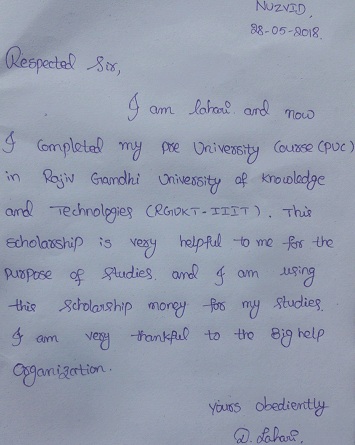 NUZVID,
28-05-2018.
Respected Sir,
I am lahari and now
I completed my pre University Course (PUC)
in Rajiv Gandhi University of knowledge
and Technologies (RGUKT-IIIT). This
scholarship is very helpful to me for the
purpose of studies. and I am using
this scholarship money for my studies.
I am very thankful to the Big help
organization.
yours obediently
D. Lahari.